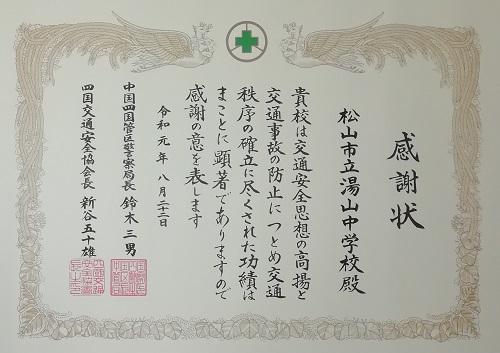 感謝状
松山市立湯山中学校殿
貴校は交通安全思想の高揚と
交通事故の防止につとめ交通
秩序の確立に尽くされた功績は
まことに顕著でありますので
感謝の意を表します
令和元年八月二十二日
中国四国管区警察局長 鈴木三男
四国交通安全協会長 新谷五十雄